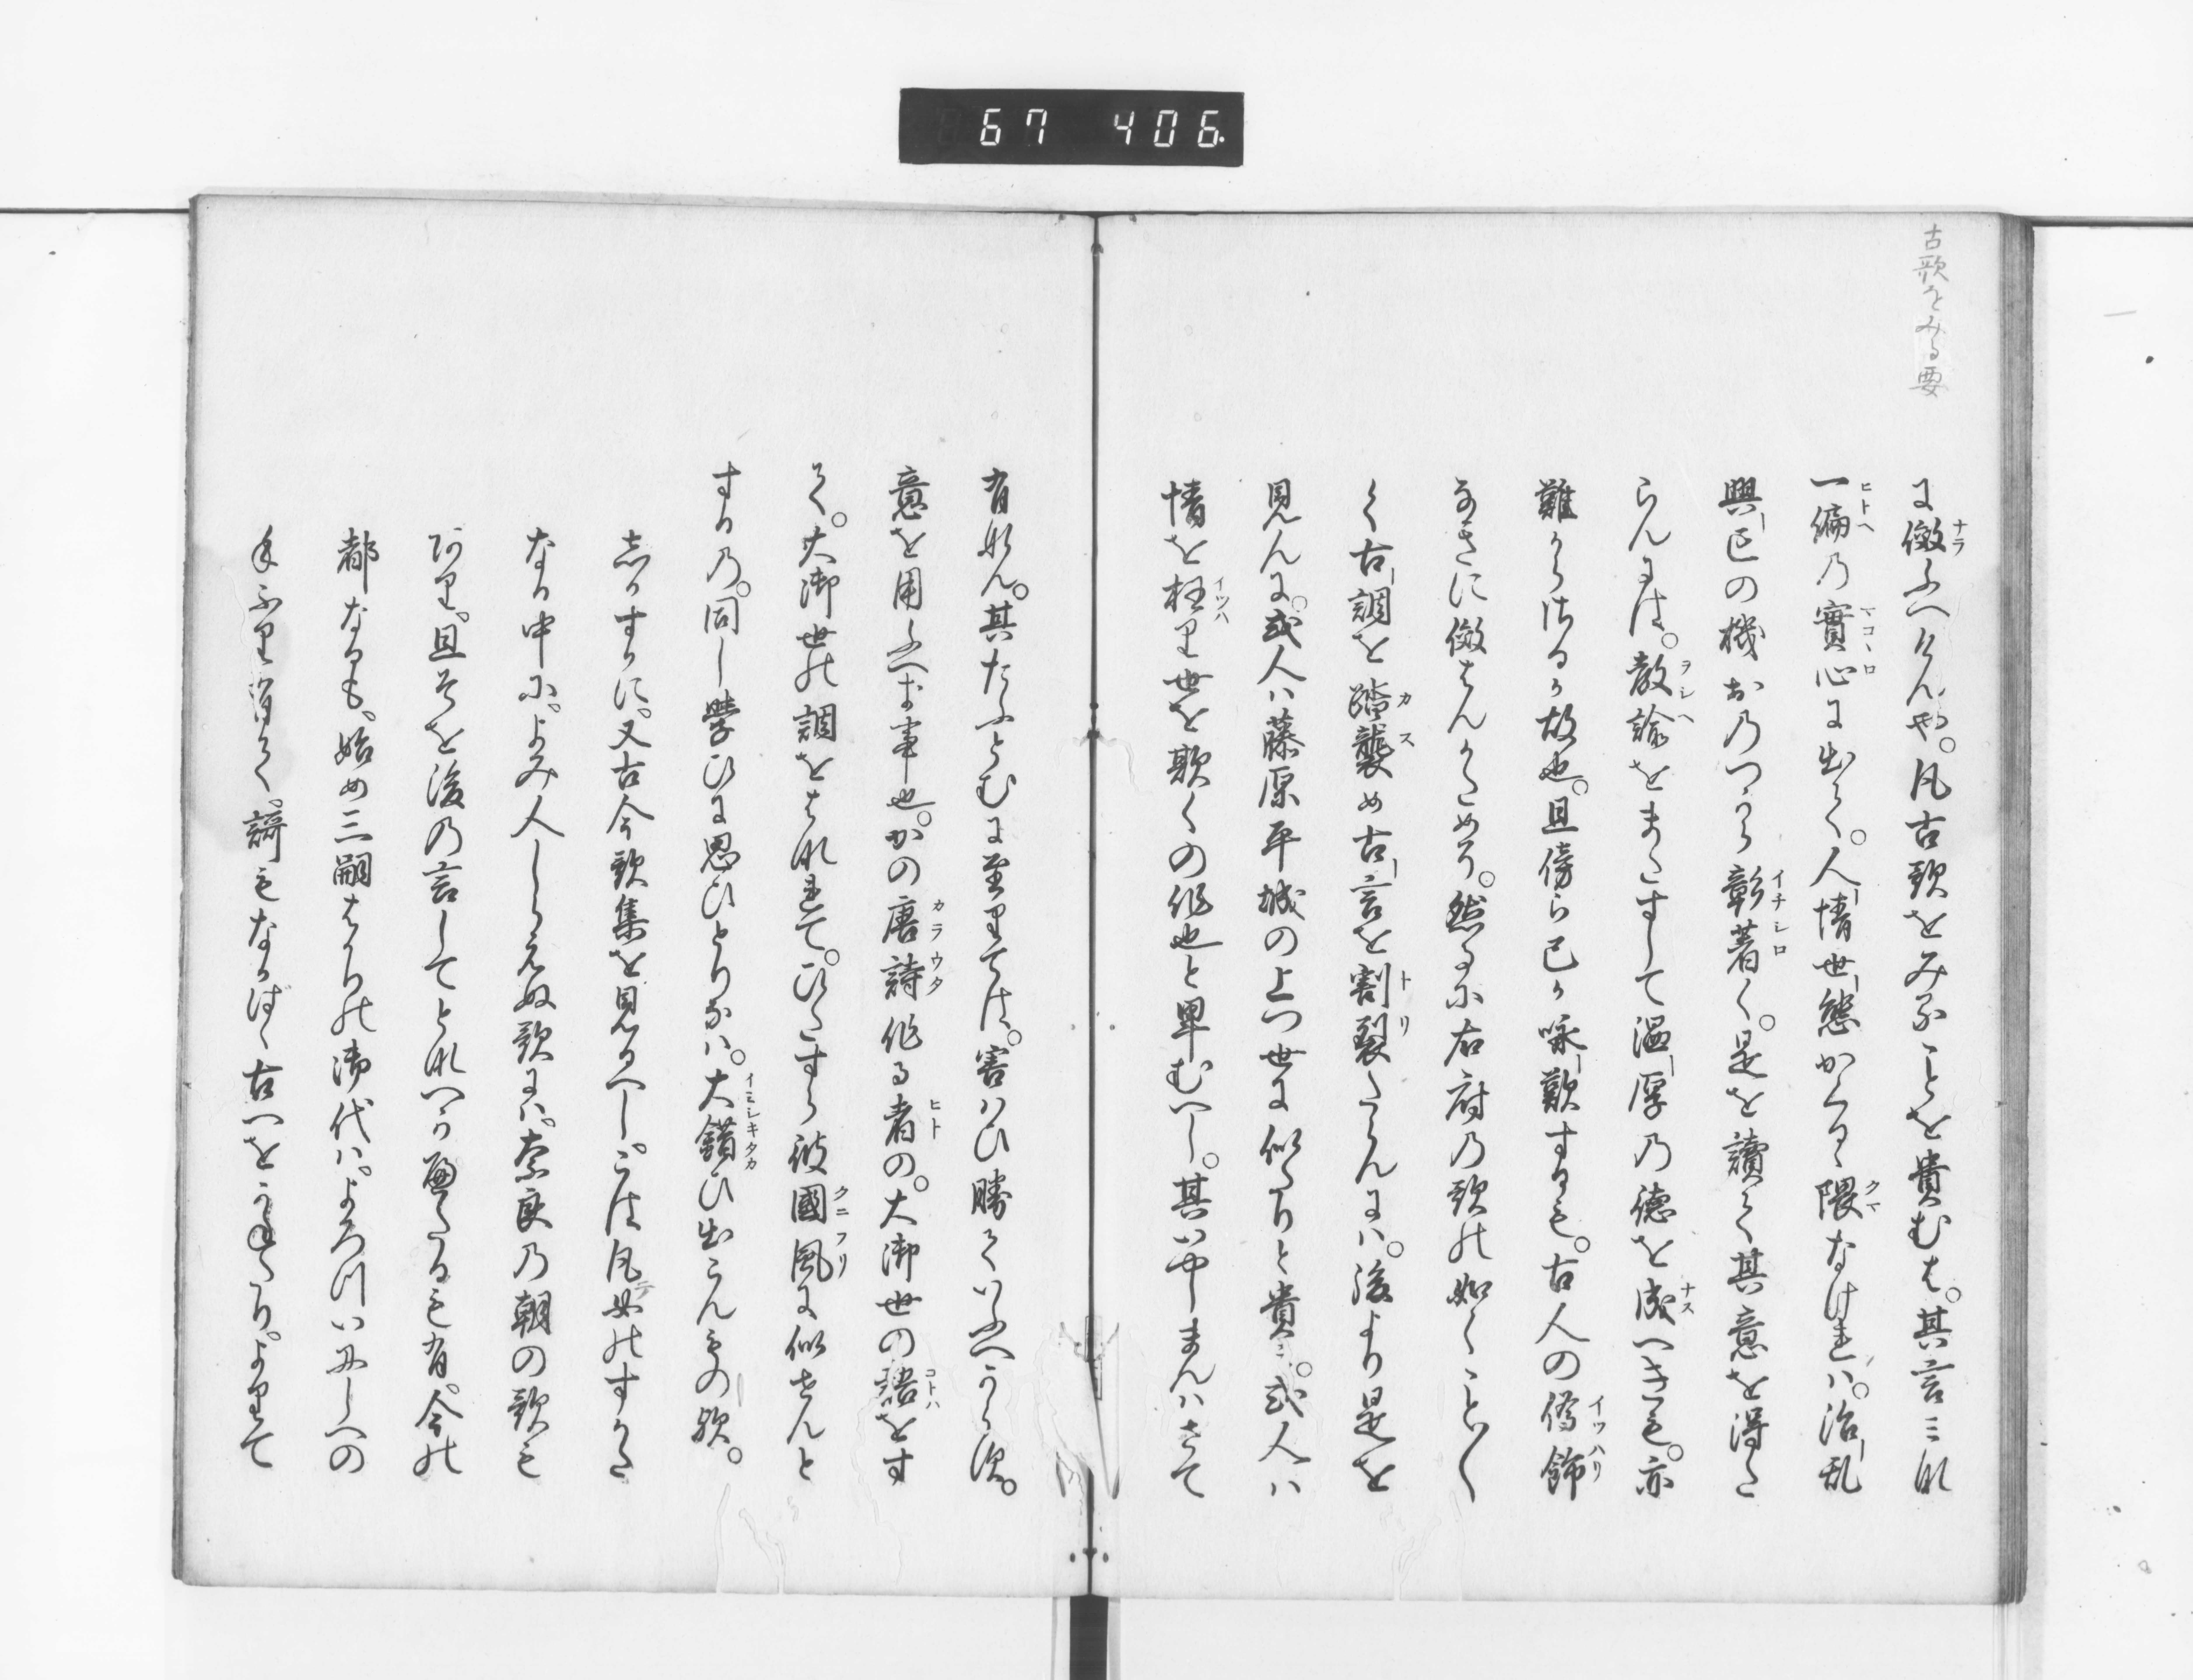 67 406.
古歌をみる要
に傚ふへけんや。凡古歌をみることを貴むは。其言ミな
一偏乃實心に出て。人情世態かくるゝ隈なけれハ。治乱
興亡の機おのつから彰著く。是を讀て其意を得た
らんには。教諭をまたすして温厚乃徳を成へきも。亦
難からさるか故也。且傍ら己か咏歎するも。古人の僞飾
なきに傚はんかためり。然るに右府乃歌の如くことことく
く古調を踏襲め古言を割裂たらんにハ。後より是を
見んに。或人ハ藤原平城の上つ世に似たりと貴ミ。或人ハ
情を枉り世を欺くの作也と卑むへし。其いやしまんハさて
有なん。其たふとむに至りては。害はひ勝ていふへからす。
意を用ふへき事也。かの唐詩作る者の。大御世の語をす
て。大御世の調をはなれて。ひたすら彼國風に似せんと
するの。同し學ひに思ひとりなハ。大錯ひ出こんもの歟。
志かするに。又古今歌集を見るへし。こは凡女のすかた
なる中に。よみ人しらえぬ歌にハ。奈良乃朝の歌も
あり。且そを後の言してとなへかへたるも有。今の
都なるも。始め三嗣はかりの御代ハ。よろついにしへの
手ふり有て。謌もなかばゝ古へをかねたり。よりて